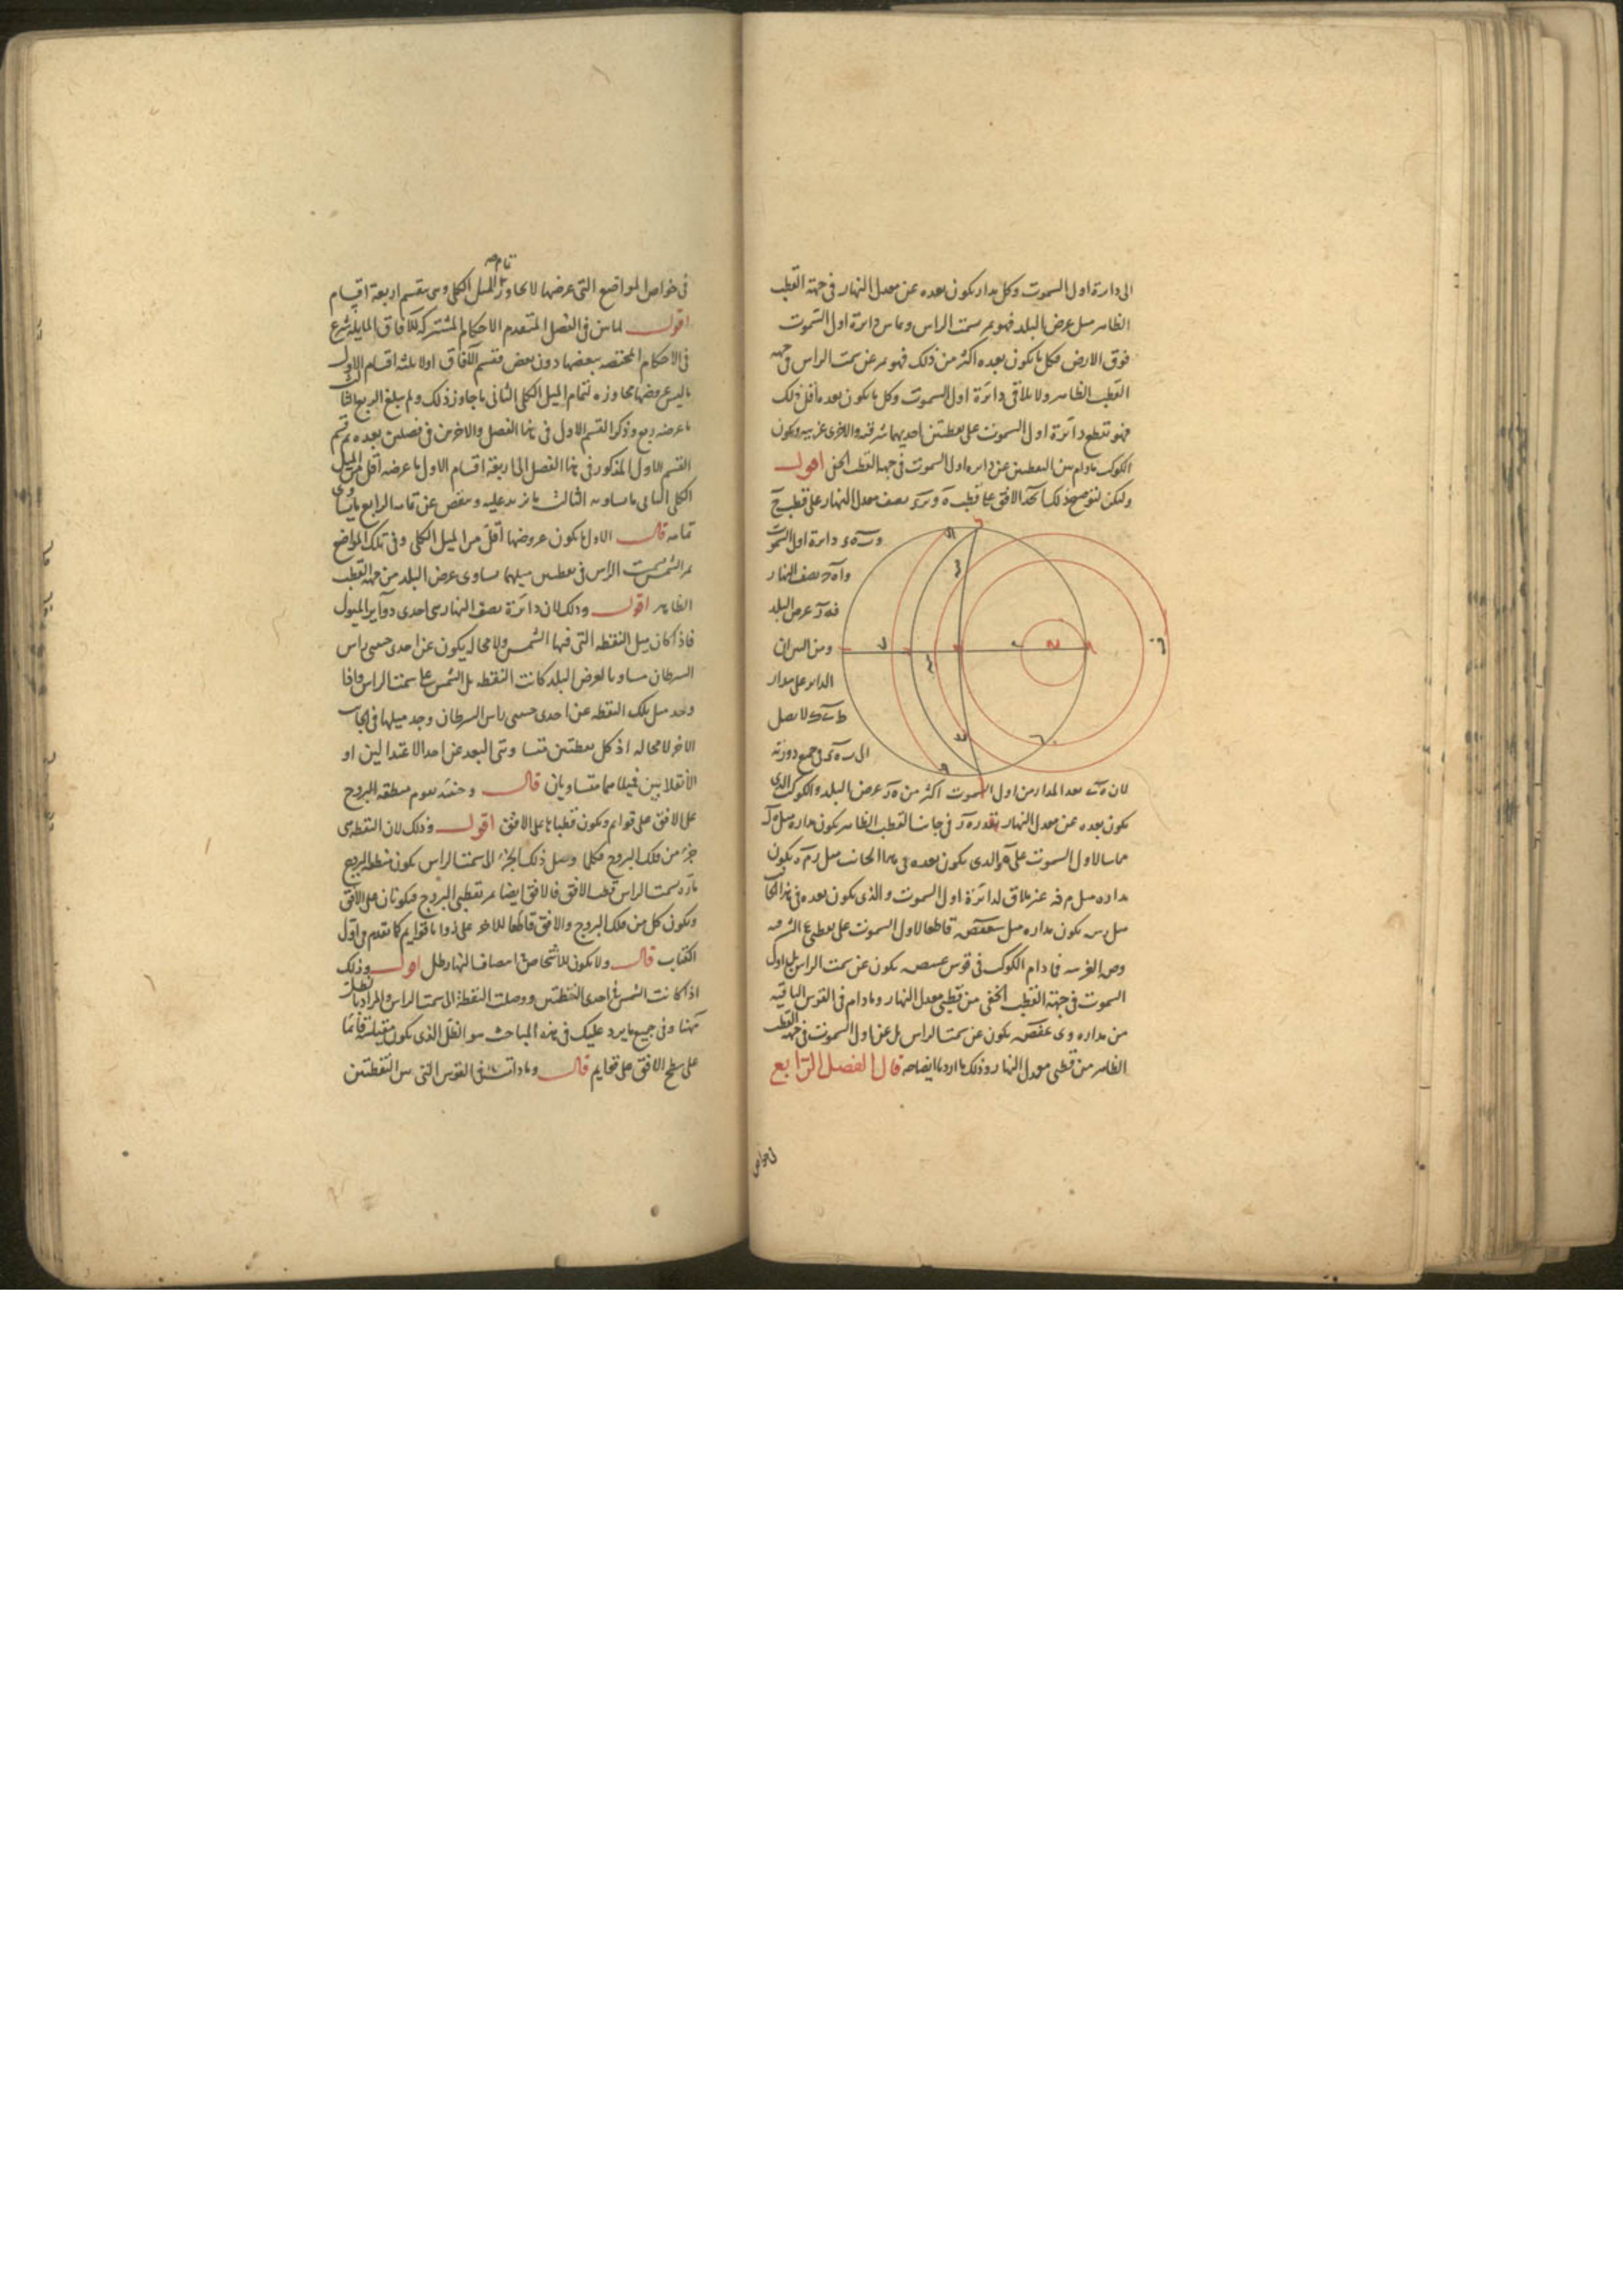 الى دائرة اول السموت وكل مدار يكون بعده عن معدل النهار فى جهة القطب
الظاهر مثل عرض البلد فهو يمر بسمت الراس ويماس دائرة اول السموت
فوق الارض فكل ما يكون بعده اكثر من ذلك فهو يمر عن سمت الراس فى جهة
القطب الظاهر ولا يلاقى دائرة اول السموت وكل ما يكون بعده اقل من ذلك
فهو تقطع دائرة اول السموت على نقطتين احديهما شرقية والاخرى غربية ويكون
الكوكب مادام بين النقطتين عن دائرة اول السموت فى جهة القطب الخفى اقول
ولكن لتوضيح ذلك الافق على قطب ه نصف معدل النهار على قطب ح
دائرة اول السموت
نصف النهار
فه ر عرض البلد
ومن البين ان
الدائر على مدار
لا يصل
الى فى جميع دورته
لان بعد المدار من اول السموت اكثر من ه ر عرض البلد والكوكب الذى
يكون بعده عن معدل النهار بقدر ه ر فى جانب القطب الظاهر يكون مداره مثل
مماسا لاول السموت على ه والذى يكون بعده فى هذا الجانب مثل رم يكون
مداره مثل م فه غير ملاق لدائرة اول السموت والذى يكون بعده فى هذا الجانب
مثل رس يكون مداره مثل قاطعا لاول السموت على نقطتى ع الشرقية
وص الغربية فما دام الكوكب فى قوس يكون عن سمت الراس بل اول
السموت فى جهة القطب الخفى من قطبى معدل النهار ومادام فى القوس الباقية
من مداره وهى يكون عن سمت الراس بل عن اول السموت فى جهة القطب
الظاهر من قطبى معدل النهار وذلك ما اردنا ايضاحه قال الفصل الرابع
فى خواص
فى خواص المواضع التى عرضها لا يجاوز تمام الميل الكلى وهى ينقسم اربعة اقسام
اقول لما بين فى الفصل المتقدم الاحكام المشتركة للآفاق المايلة شرع
فى الاحكام المختصة ببعضها دون بعض فقسم الآفاق اولا بثلثة اقسام الاول
ما ليس عروضها مجاوزة لتمام الميل الكلى الثانى ما جاوز ذلك ولم يبلغ الربع الثالث
ما عرضه ربع وذكر القسم الاول فى هذا الفصل والاخرين فى فصلين بعده ثم قسم
القسم الاول المذكور فى هذا الفصل الى اربعة اقسام الاول ما عرضه اقل من الميل
الكلى الثانى ما يساويه الثالث ما يزيد عليه وينقص عن تمامه الرابع ما يساوى
تمامه قال الاول ما يكون عروضها اقل من الميل الكلى وفى تلك المواضع
تمر الشمس بسمت الراس فى نقطتين ميلهما يساوى عرض البلد من جهة القطب
الظاهر اقول وذلك لان دائرة نصف النهار هى احدى دوائر الميول
فاذا كان ميل النقطة التى فيها الشمس ولا محالة يكون عن احدى جنبتى راس
السرطان مساويا لعرض البلد كانت النقطة بل الشمس على سمت الراس واذا
وجد ميل تلك النقطة عن احدى جنبتى راس السرطان وجد ميلها فى الجانب
الاخر لا محالة اذ كل نقطتين متساوتى البعد عن احد الاعتدالين او
الانقلابين فميلاهما متساويان قال وحينئذ يقوم منطقة البروج
على الافق على قوايم ويكون قطباها على الافق اقول وذلك لان النقطة هى
جزء من فلك البروج فكلما وصل ذلك الجزء الى سمت الراس يكون منطقة البروج
مارة بسمت الراس قطب الافق فالافق ايضا يمر بقطبى البروج فيكونان على الافق
ويكون كل من فلك البروج والافق قاطعا للاخر على زوايا قوايم كما تقدم فى اول
الكتاب قال ولا يكون للاشخاص انصاف النهار ظل اقول وذلك
اذا كانت الشمس فى احدى النقطتين ووصلت النقطة الى سمت الراس والمراد بالظل
ههنا وفى جميع ما يرد عليك فى هذه المباحث هو الظل الذى يكون مقياسه قائما
على سطح الافق على قوايم قال ومادامت فى القوس التى بين النقطتين